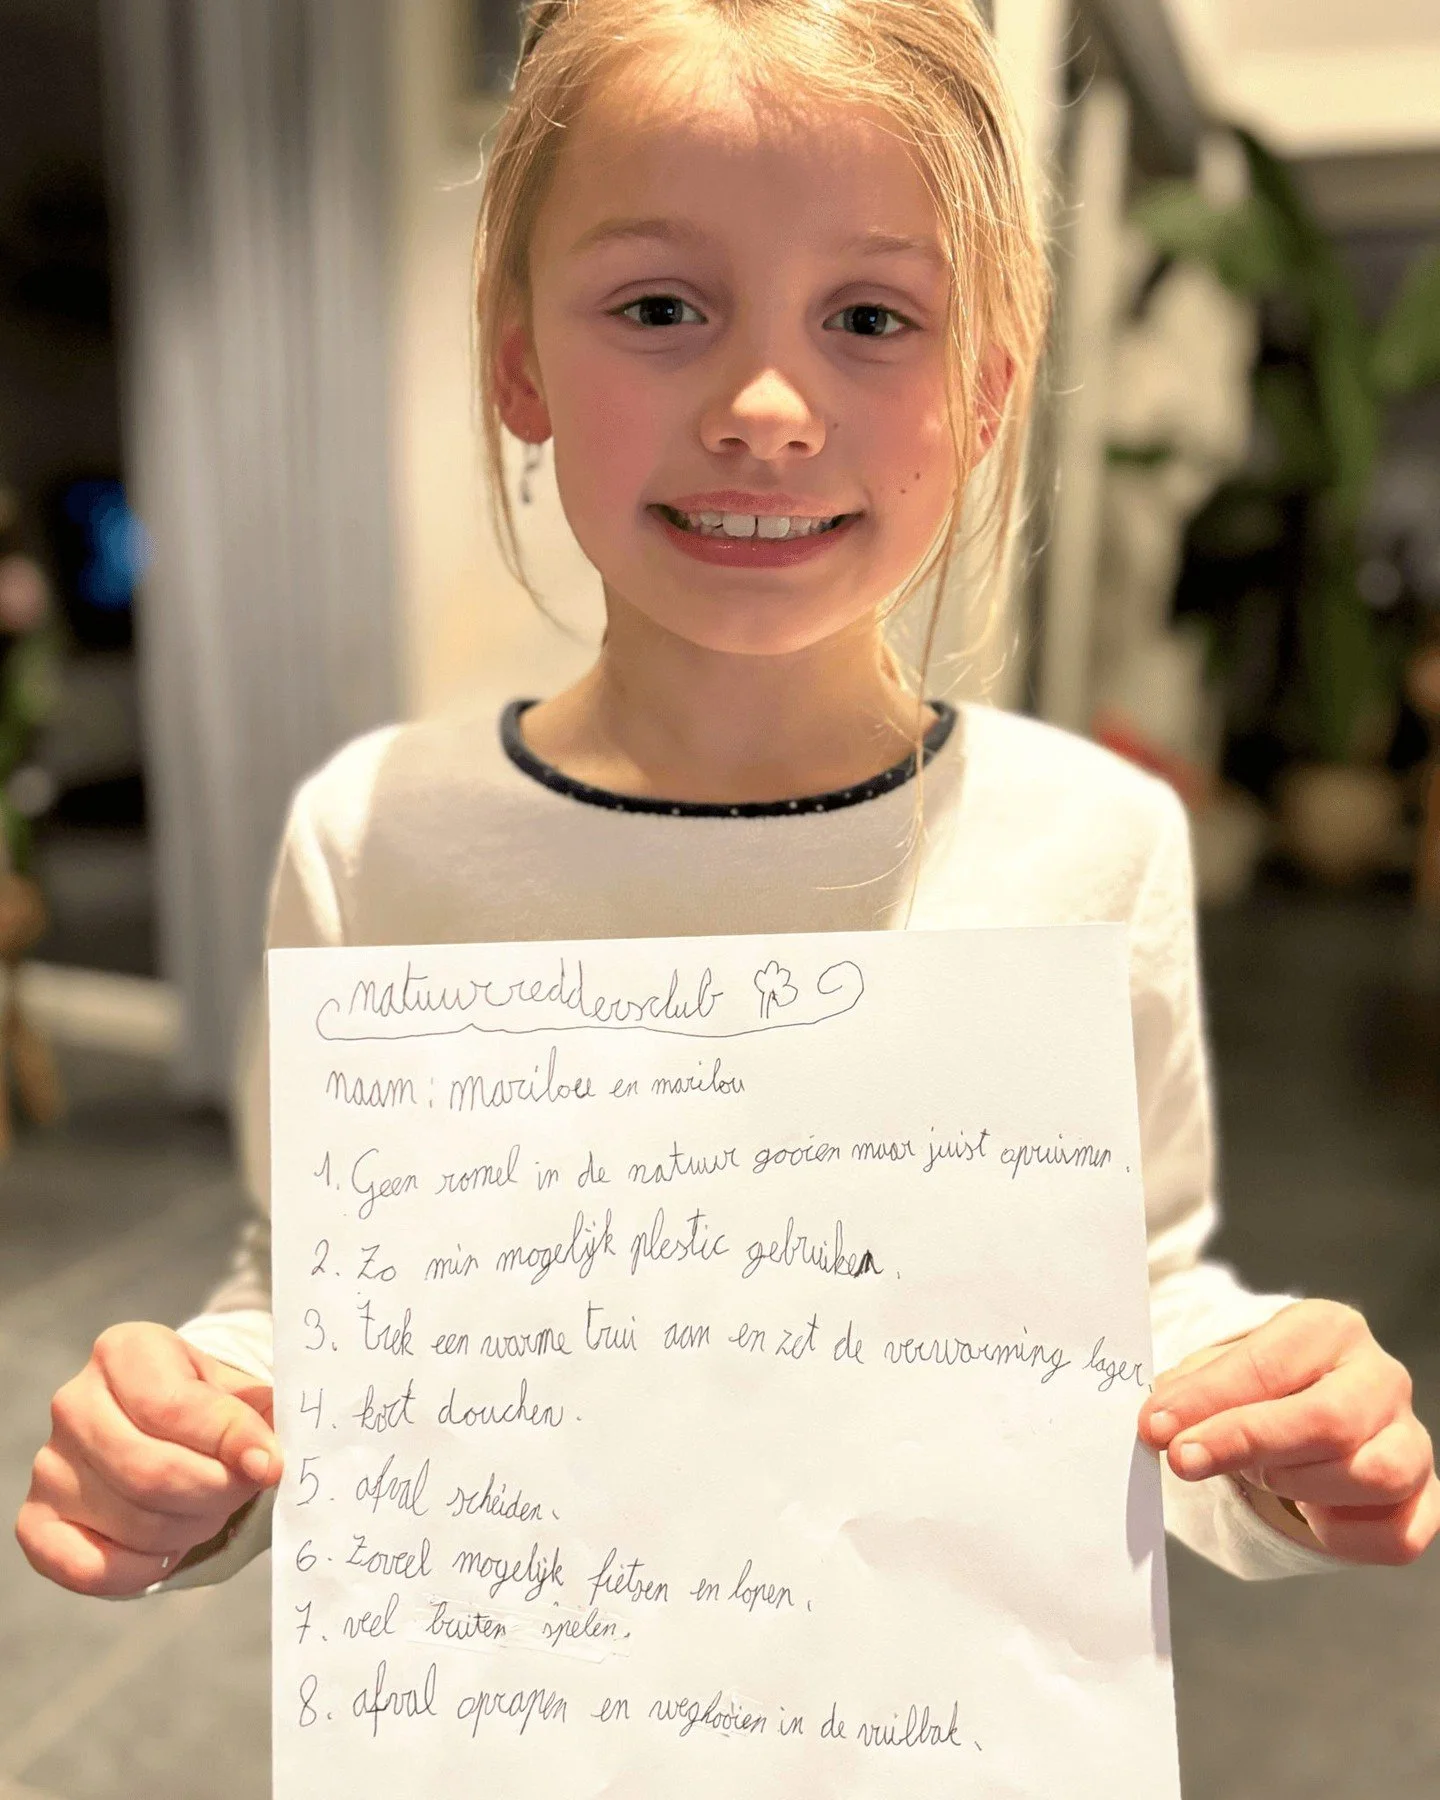 natuurreddersclub
naam: Marilou en marilou
1. Geen romel in de natuur gooien maar juist opruimen.
2. Zo min mogelijk plestic gebruiken.
3. trek een warme trui aan en zet de verwarming lager.
4. kort douchen.
5. afval scheiden.
6. Zoveel mogelijk fietsen en lopen.
7. veel buiten spelen.
8. afval oprapen en weghooien in de vuilbak.